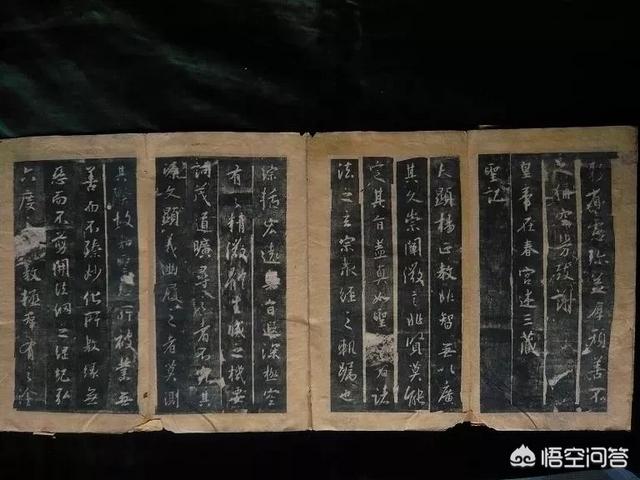 省慮弥益厚顏善不
足稱空勞致謝
皇帝在春宮述三藏
聖記
夫顯揚正教非智無以廣
其文崇闡微言非賢莫能
定其旨蓋真如聖者諸
法之玄宗衆經之軌躅也
綜括宏遠奧旨遐深極空
有之精微體生滅之機要
詞茂道曠尋之者不究其
源文顯義幽履之者莫測
其際故知所被業無
善而不臻妙化所敷緣無
惡而不翦開法網之綱紀弘
六度教拯群有之塗
悟空问答